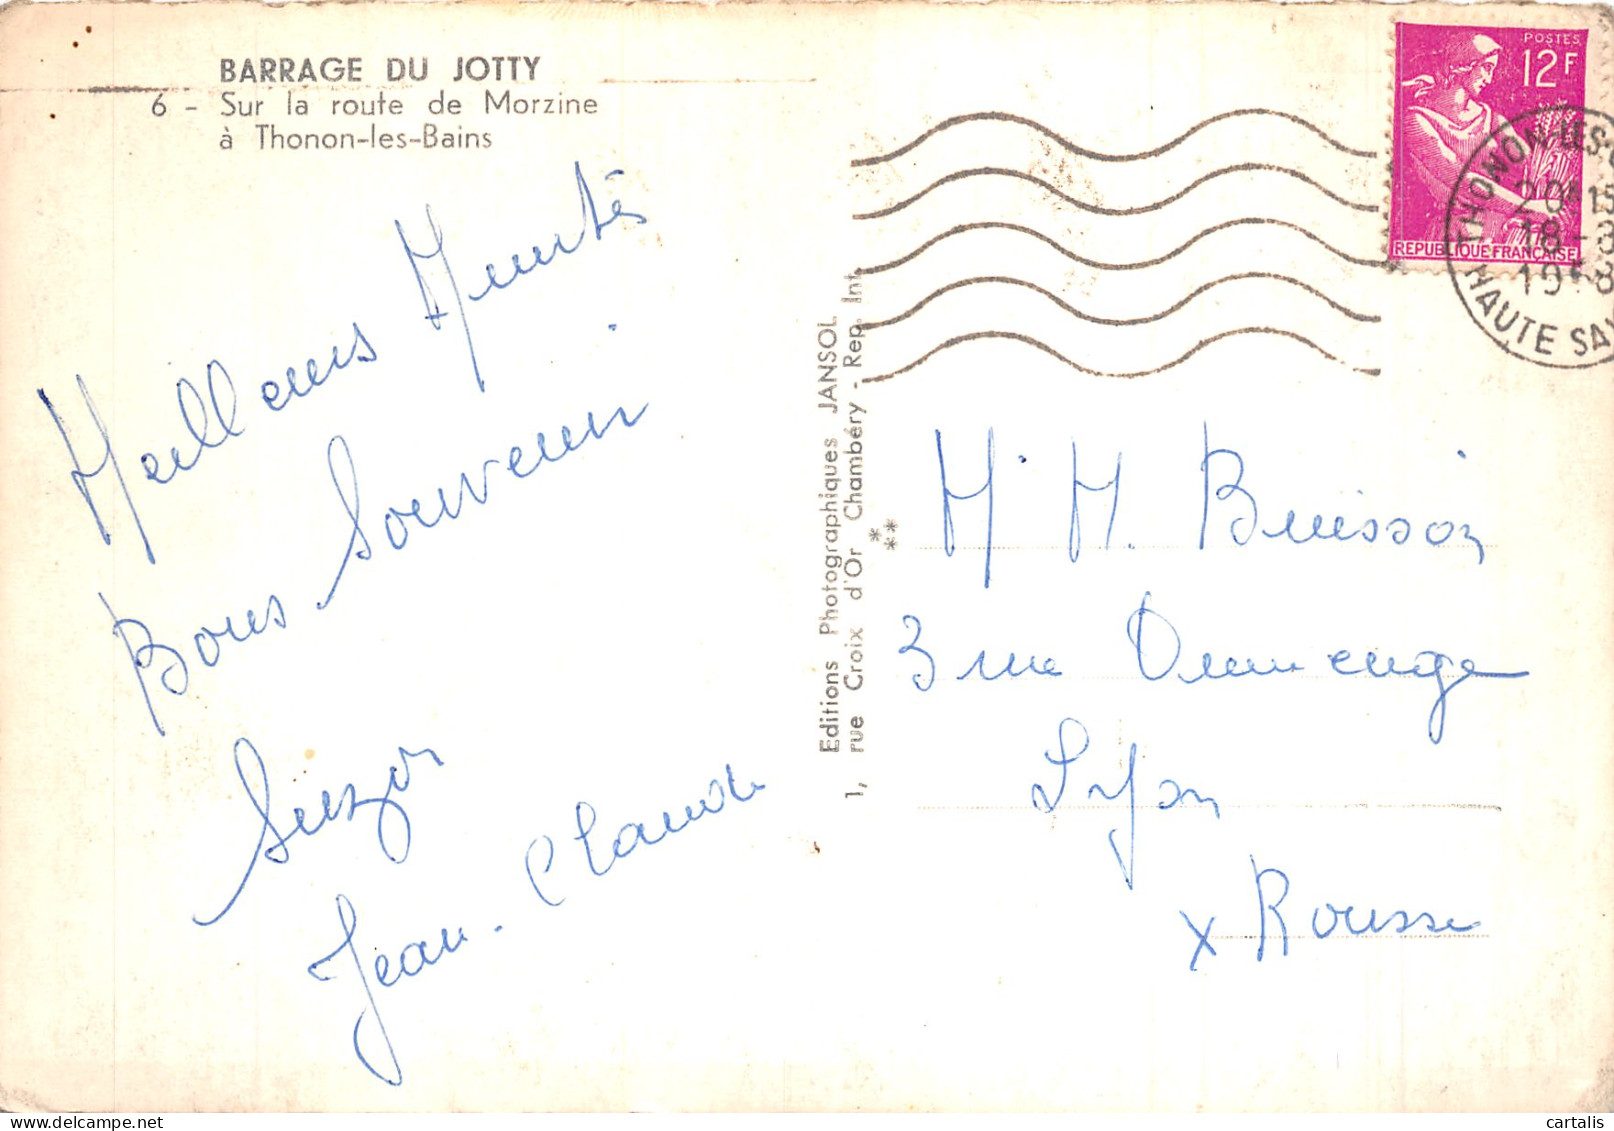 BARRAGE DU JOTTY
6 - Sur la route de Morzine
à Thonon-les-Bains
Meilleurs
Bons Souvenir
Jean-Claude
Editions Photographiques JANSOL
1, rue Croix d'Or Chambéry - Rep. Int.
POSTES
12F
REPUBLIQUE FRANÇAISE
THONON-LES-
20H15
18-8
1958
HAUTE SAV
Mr M. Buisson
3 rue Dumenge
Lyon
X Rousse
cartalis